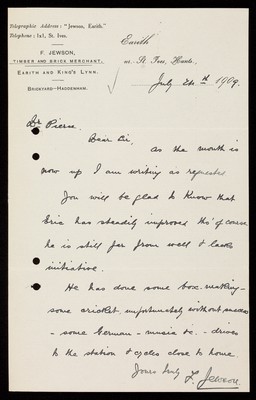 Telegraphic Address: "Jewson, Earith."
Telephone: 1x1, St. Ives.
F. JEWSON,
TIMBER AND BRICK MERCHANT,
EARITH AND KING'S LYNN.
BRICKYARD—HADDENHAM.
Earith
nr. St. Ives, Hunts,
July 24th 1909.
Dr Pierce.
Dear Sir,
as the month is
now up I am writing as requested
You will be glad to know that
Eric has steadily improved tho' of course
he is still far from well & lacks
initiative.
He has done some box-making-
some cricket, unfortunately without success
- some German - music &c. - drives
to the station & cycles close to home.
Yours truly
F. Jewson.